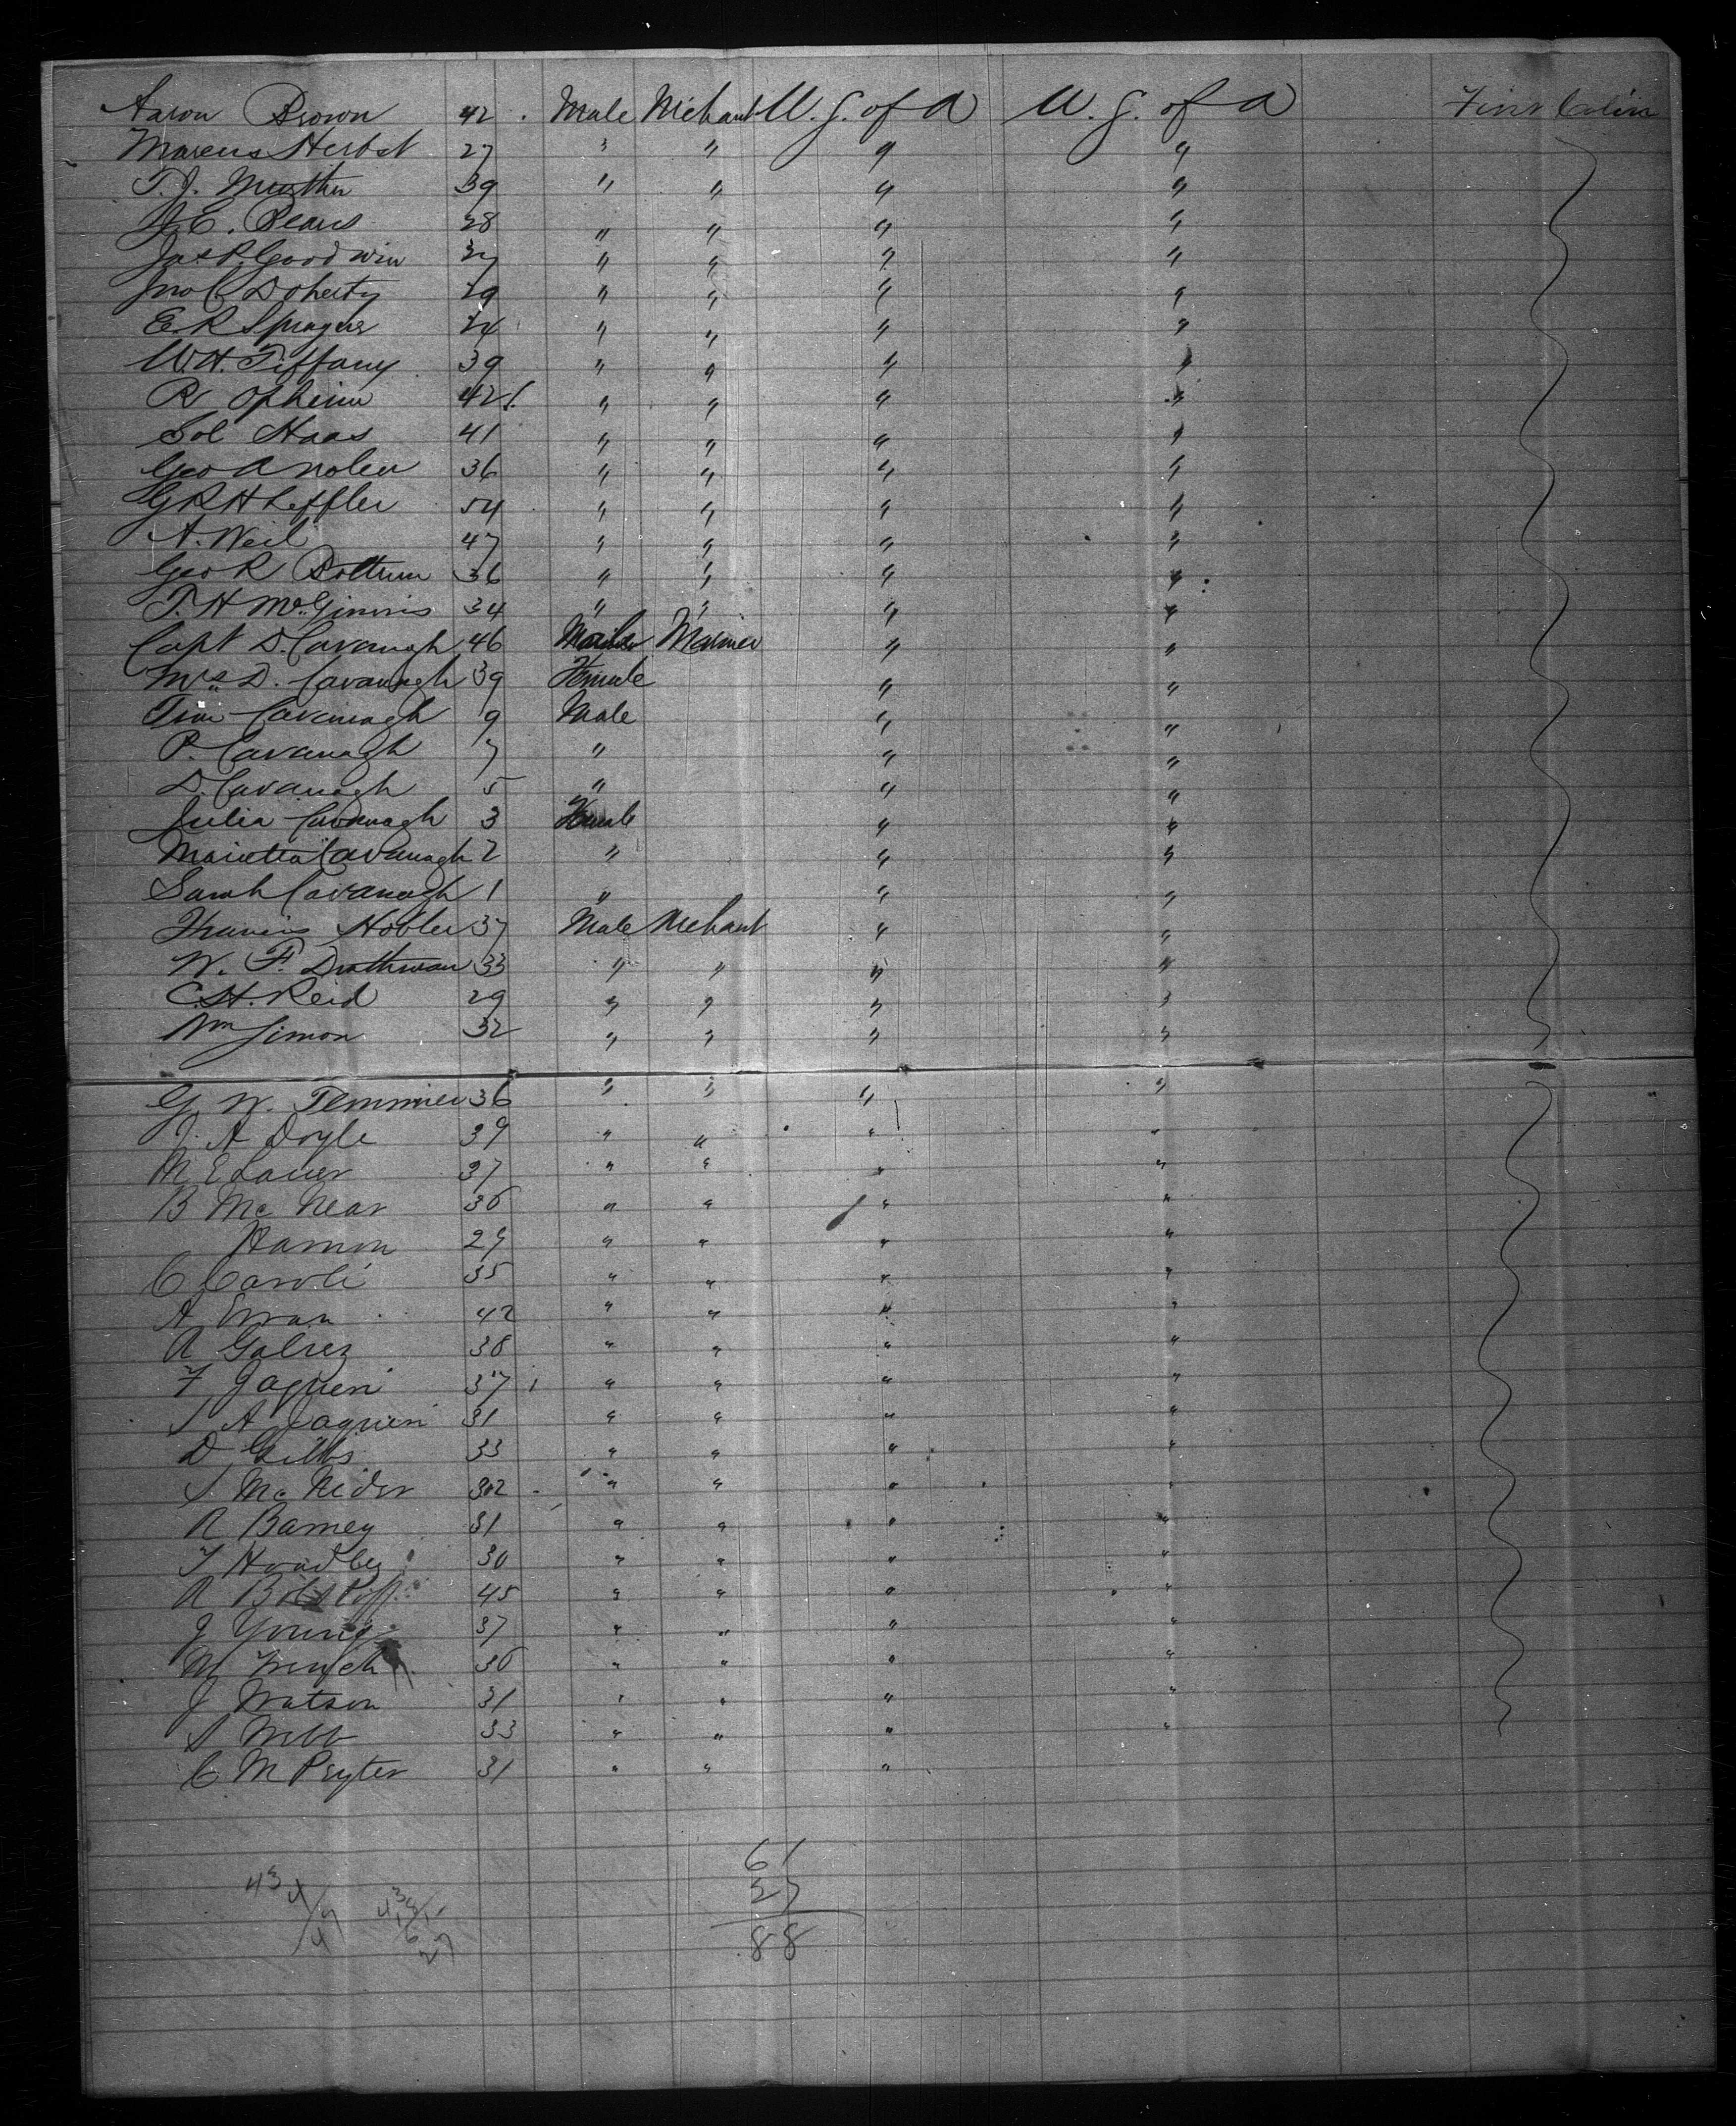 Aaron Brown 42 Male Mchant U. S. of A U. S. of A First Cabin
Marcus Herbst 27 " " " "
T. J. 39 " " " "
J. C. 28 " " " "
Jas R. Goodwin 37 " " " "
Jno C Doherty 29 " " " "
E R Sprague 24 " " " "
W. H. Tiffany 39 " " " "
R 42 " " " "
Sol Haas 41 " " " "
Geo A Nolen 36 " " " "
G R H Leffler 54 " " " "
A. Weil 47 " " " "
Geo R 36 " " " "
T. H McGinnis 34 " " " "
Capt D. Cavanagh 46 Mariner " "
Mrs D. Cavanagh 39 Female " "
Tim Cavanagh 9 Male " "
P. Cavanagh 7 " " "
D. Cavanagh 5 " " "
Julia Cavanagh 3 Female " "
Marietta Cavanagh 2 " " "
Sarah Cavanagh 1 " " "
Francis 37 Male Mchant " "
W. F. 33 " " " "
C. H. Reid 29 " " " "
Wm Simon 32 " " " "
G. W. 36 " " " "
J. A Doyle 39 " " " "
M E Lauer 37 " " " "
B Mc Near 36 " " " "
Hamon 29 " " " "
C Caroli 35 " " " "
A 42 " " " "
A Galvez 38 " " " "
F Jaquen 37 " " " "
S A Jaquen 31 " " " "
D Gibbs 33 " " " "
S Mc Nider 32 " " " "
A Barney 31 " " " "
T 30 " " " "
A 45 " " " "
J Young 37 " " " "
M French 36 " " " "
J Watson 31 " " " "
S Webb 33 " " " "
C M Peyter 31 " " "
61
27
88